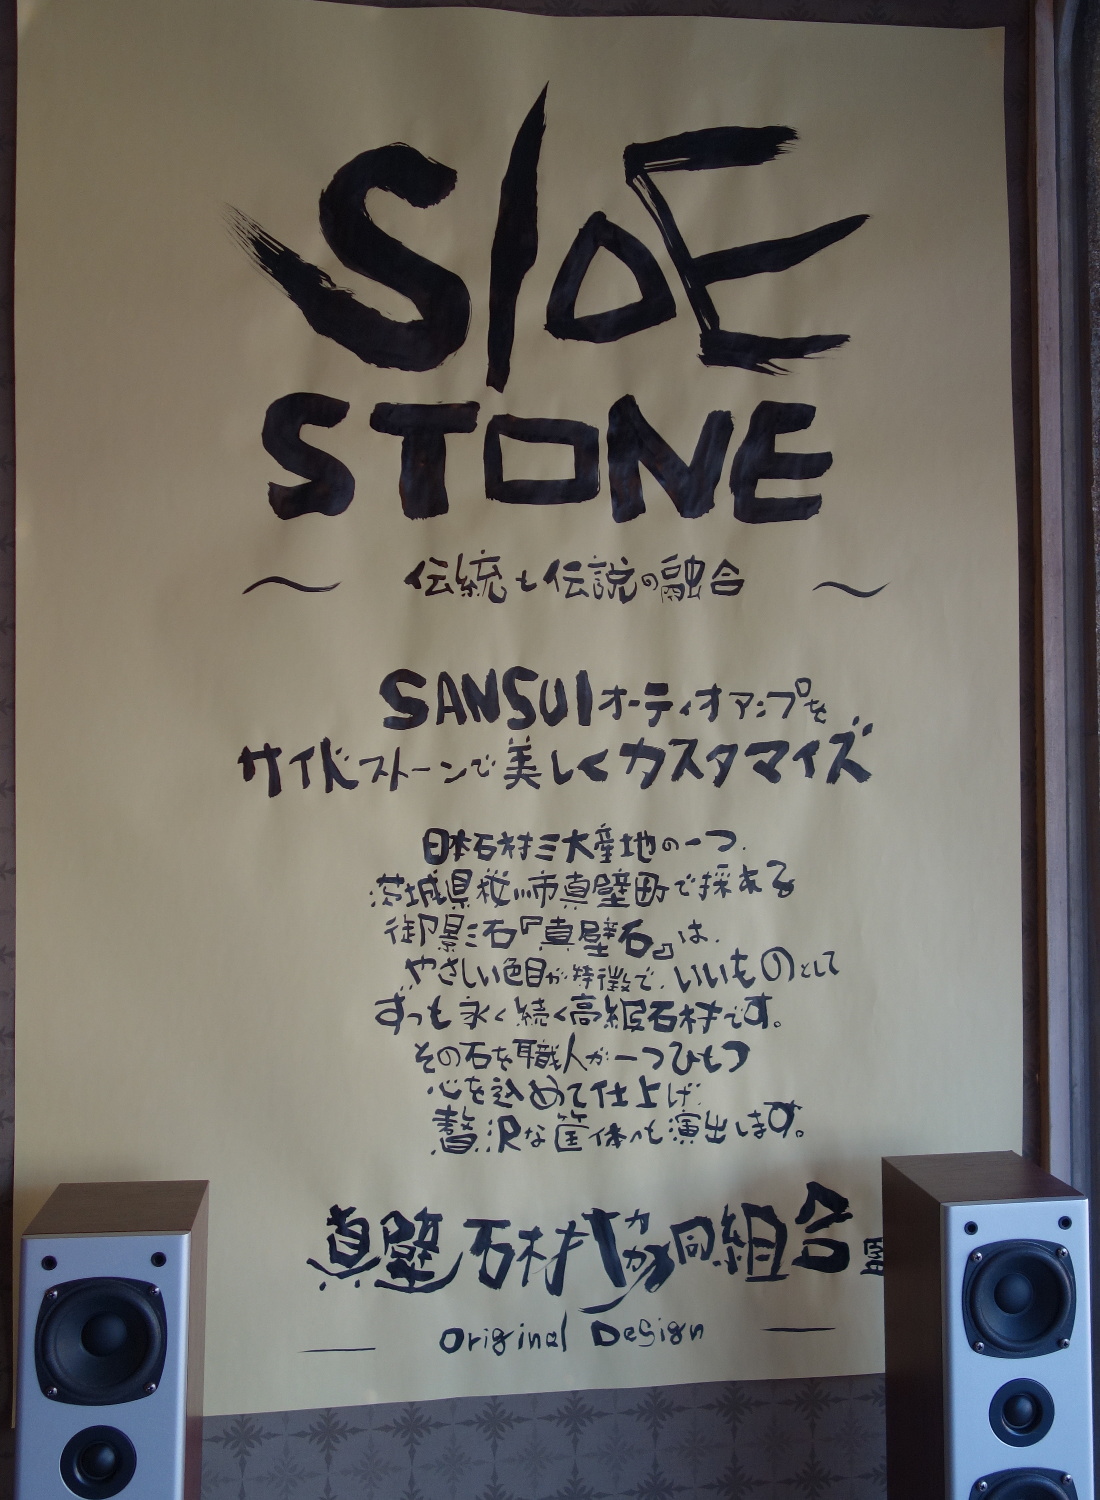 SIDE
STONE
〜 伝統と伝説の融合 〜
SANSUIオーディオアンプを
サイドストーンで美しくカスタマイズ
日本石材三大産地の一つ、
茨城県桜川市真壁町で採れる
御影石『真壁石』は、
やさしい色目が特徴で、いいものとして
ずっと永く続く高級石材です。
その石を職人が一つひとつ
心を込めて仕上げ、
贅沢な筐体へと演出します。
真壁石材協同組合
Original Design